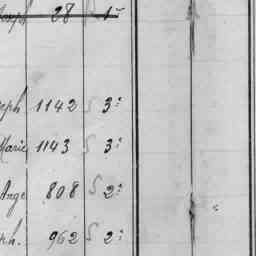 Joseph 28 1º
eph 1142 S 3º
Marie 1143 S 3º
Ange 808 S 2º
ph. 962 S 2º